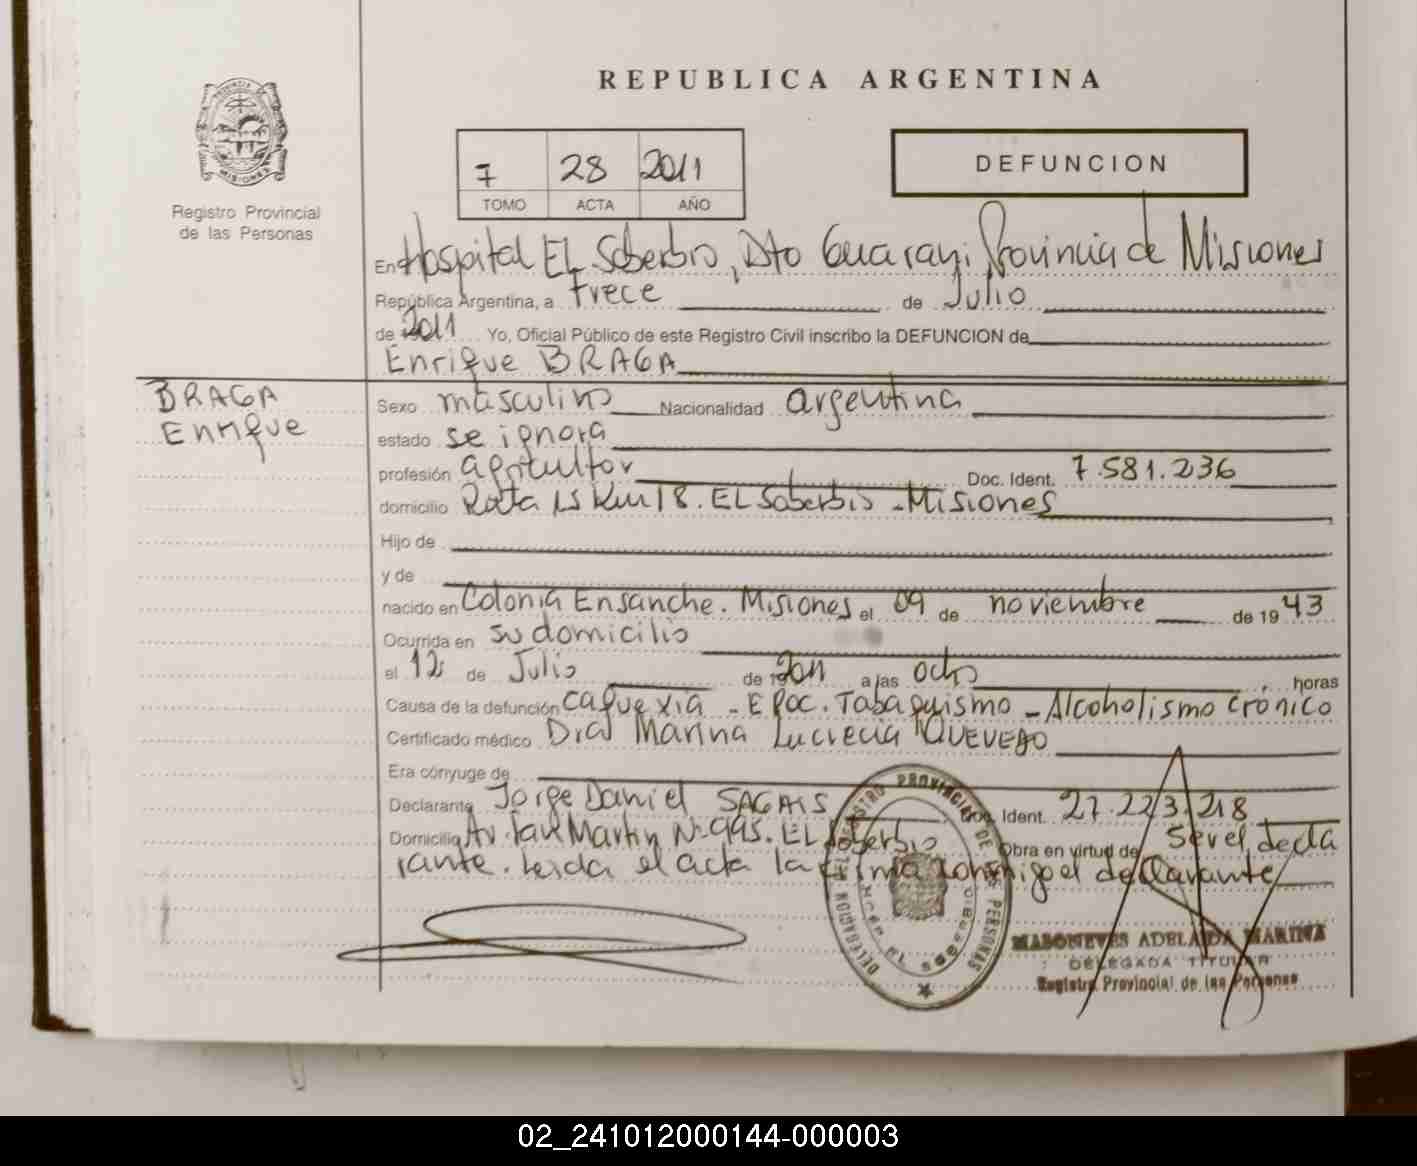 REPUBLICA ARGENTINA
7 28 2011
TOMO ACTA AÑO
DEFUNCION
Registro Provincial
de las Personas
En Hospital EL Soberbio, Dto Guarani Provincia de Misiones
República Argentina, a trece de Julio
de 2011 Yo, Oficial Público de este Registro Civil inscribo la DEFUNCION de
Enrique BRAGA
BRAGA
Enrique
Sexo masculino Nacionalidad argentina
estado se ignora
profesión agricultor Doc. Ident. 7.581.236
domicilio Ruta Km 18. EL Soberbio - Misiones
Hijo de
y de
nacido en Colonia Ensanche. Misiones el 09 de noviembre de 1943
Ocurrida en su domicilio
el 12 de Julio de 2011 a las ocho horas
Causa de la defunción caquexia - EPOC. Tabaquismo - Alcoholismo crónico
Certificado médico Dra Marina Lucrecia QUEVEDO
Era cónyuge de
Declarante Jorge Daniel Doc. Ident. 27.223.218
Domicilio Av. San Martin Nº 995. EL Soberbio Obra en virtud de Ser el decla
rante. Leida el acta la firma conmigo el declarante
REGISTRO PROVINCIAL DE LAS PERSONAS
DELEGACION
MABONEVES ADELAIDA MARINA
DELEGADA TITULAR
Registro Provincial de las Personas
02_241012000144-000003